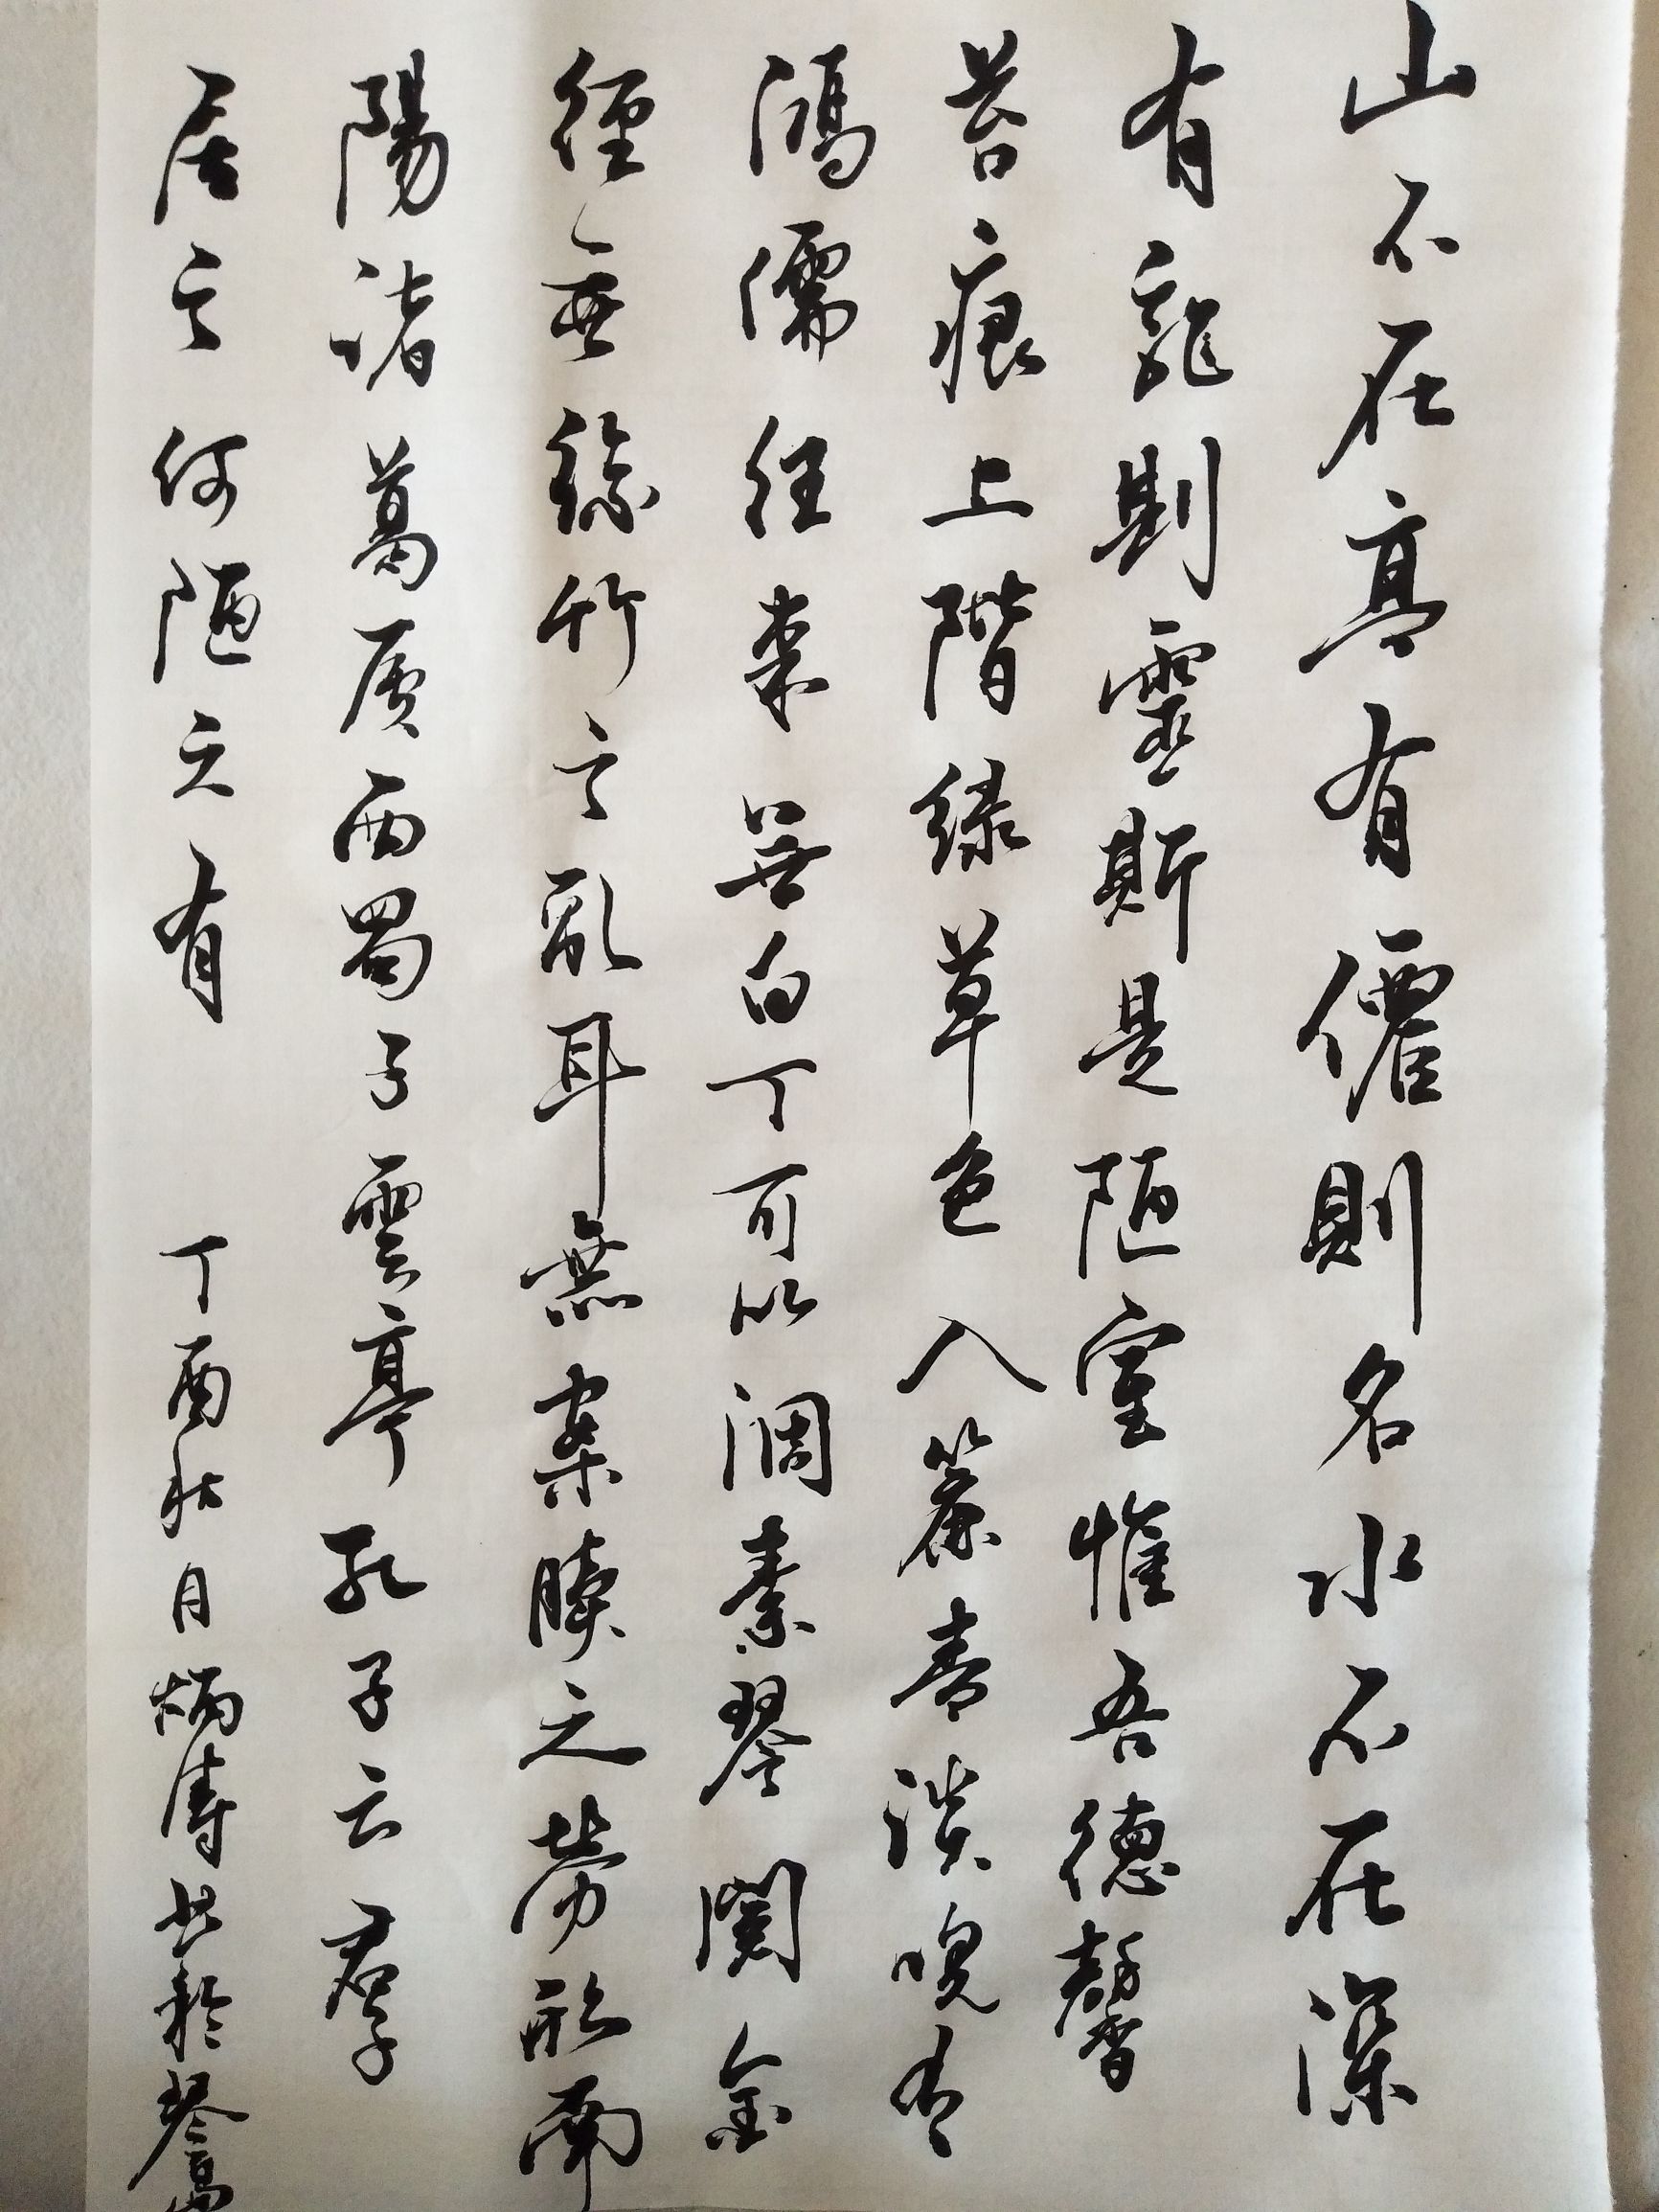 山不在高有僊則名水不在深
有龍則靈斯是陋室惟吾德馨
苔痕上階綠草色入簾青談笑有
鴻儒往來無白丁可以調素琴閱金
經無絲竹之亂耳無案牘之勞形南
陽諸葛廬西蜀子雲亭孔子云君子
居之何陋之有 丁酉秋月炳濤书於琴